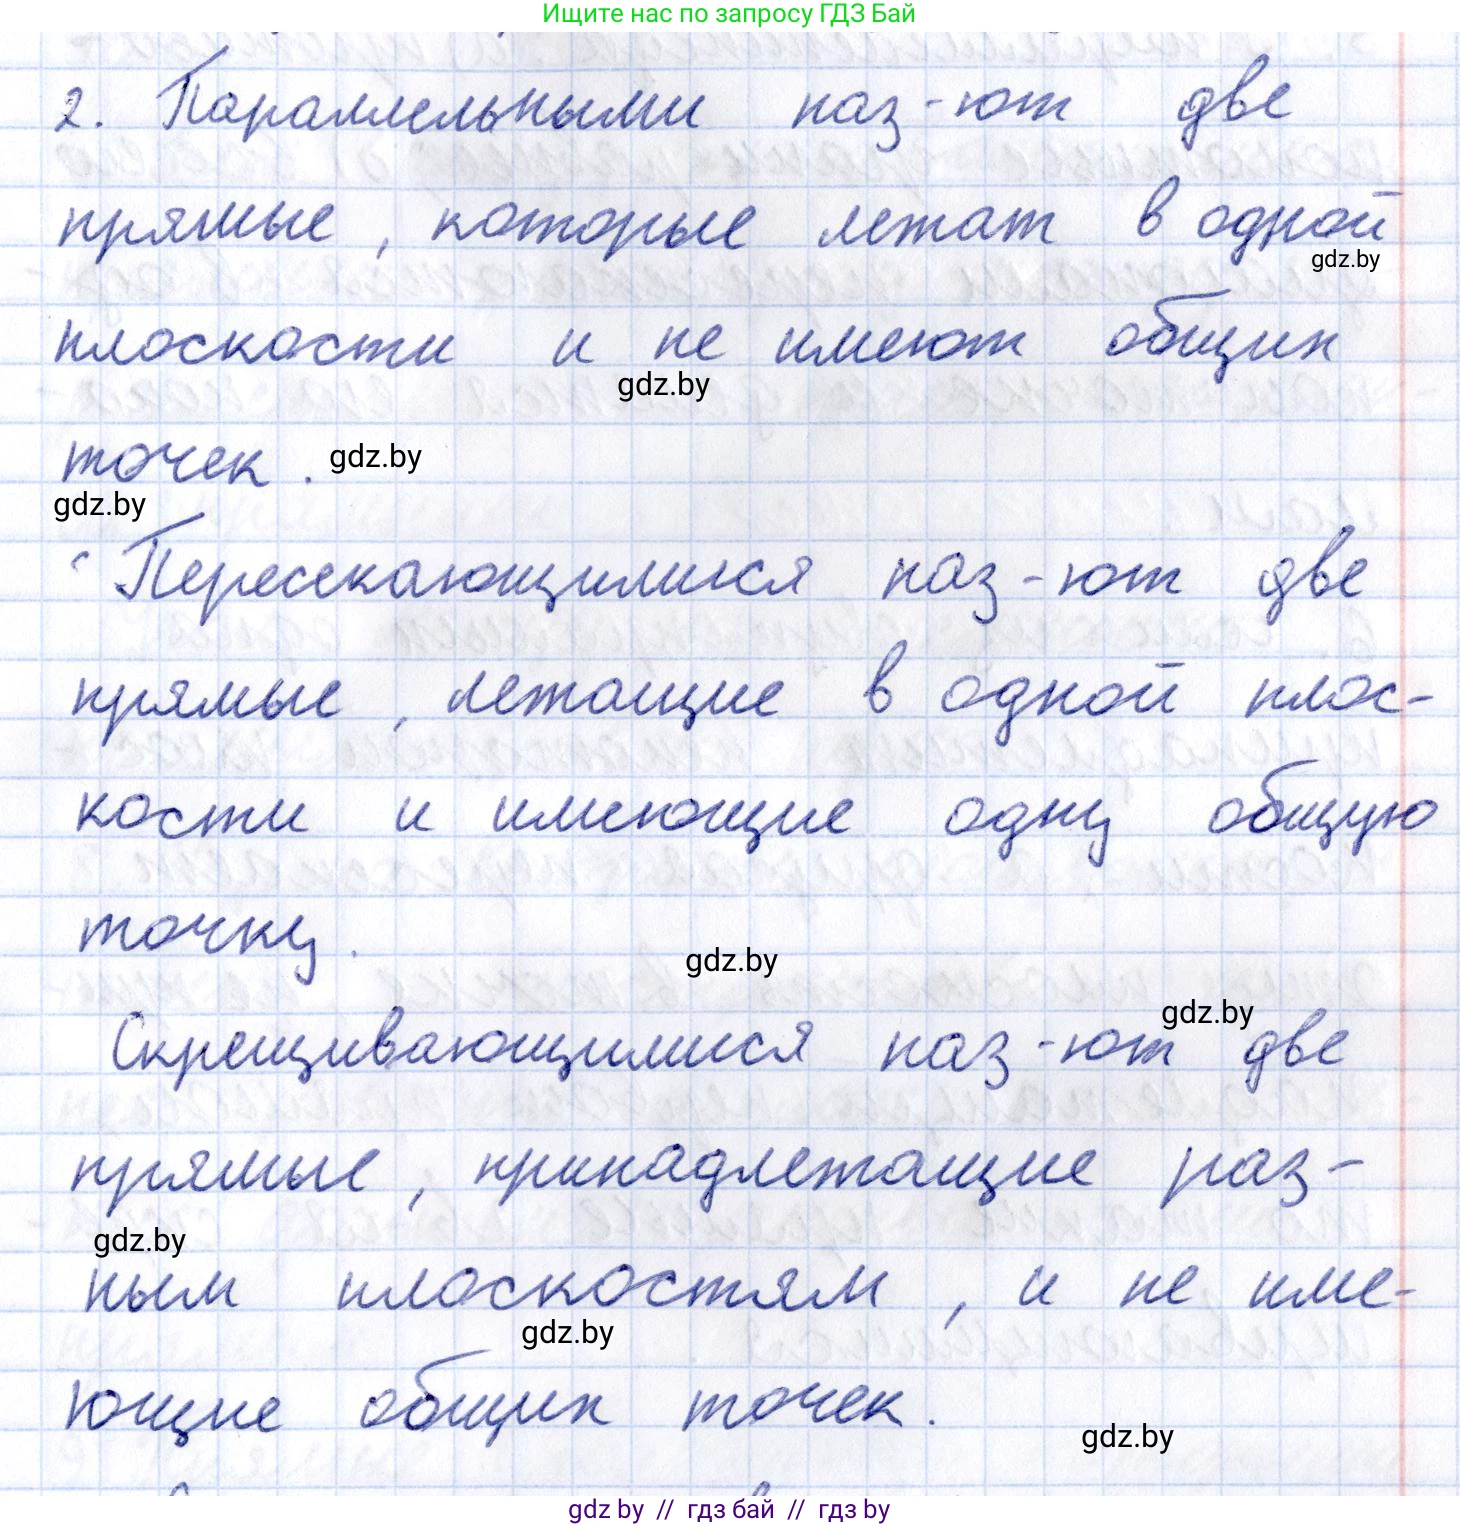 Ищите нас по запросу ГДЗ Бай
2. Параллельными наз-ют две
прямые, которые лежат в одной
gdz.by
плоскости и не имеют общих
gdz.by
точек.
gdz.by
gdz.by
Пересекающимися наз-ют две
прямые, лежащие в одной плос-
кости и имеющие одну общую
точку.
gdz.by
gdz.by
Скрещивающимися наз-ют две
прямые, принадлежащие раз-
gdz.by
ным плоскостям, и не име-
gdz.by
ющие общих точек.
gdz.by
gdz by // гдз бай // гдз by